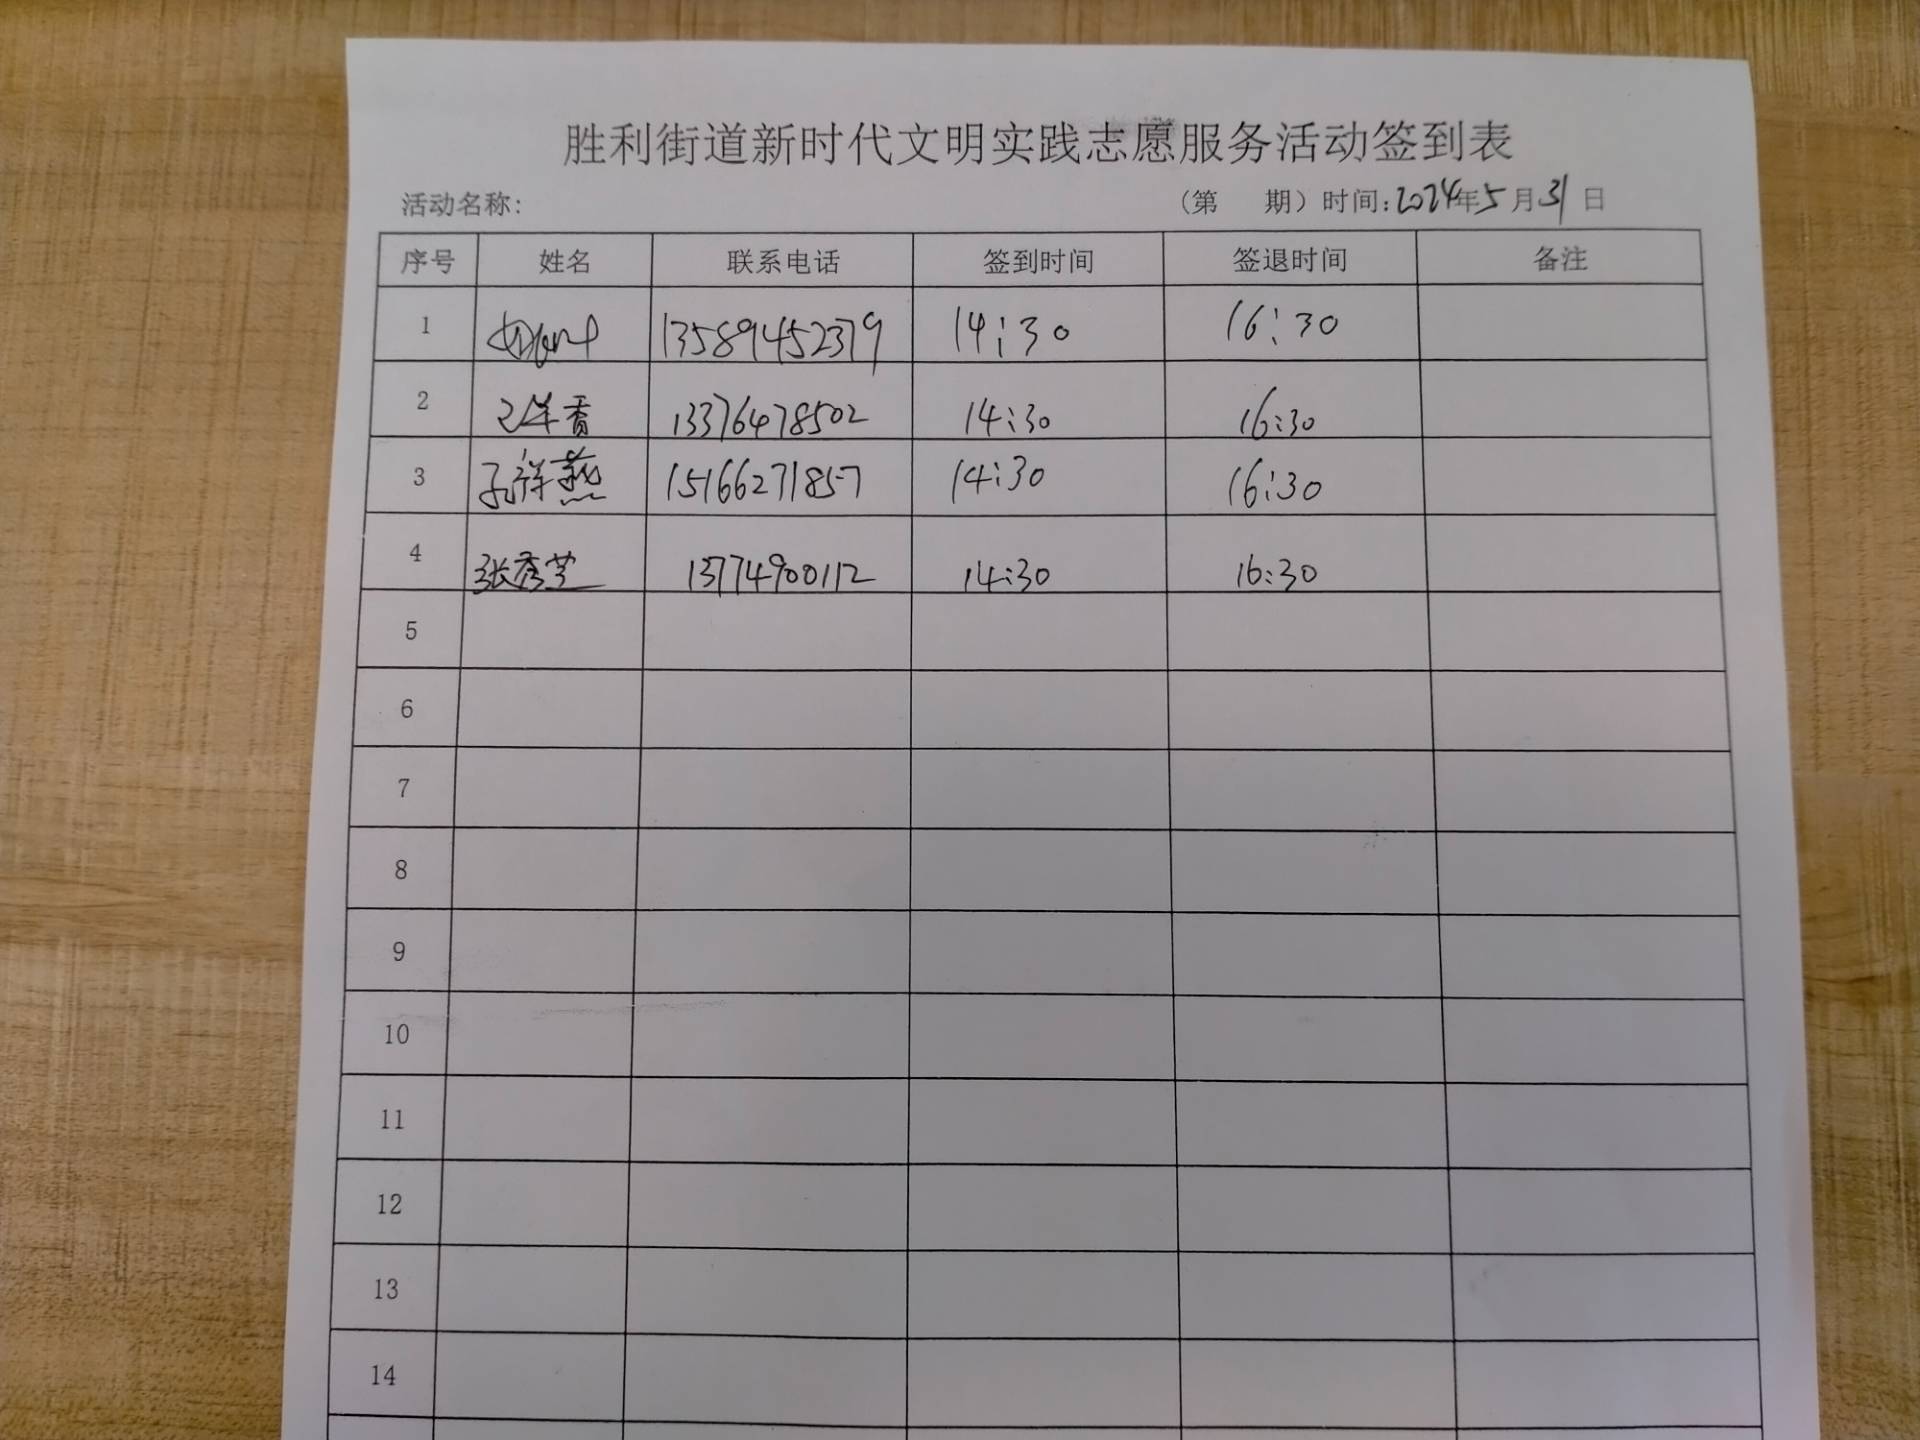 胜利街道新时代文明实践志愿服务活动签到表
活动名称: （第 期）时间:2024年5月31日
序号 姓名 联系电话 签到时间 签退时间 备注
1 13589452379 14:30 16:30
2 13376478502 14:30 16:30
3 孔祥燕 15166271857 14:30 16:30
4 张秀芝 13774900112 14:30 16:30
5
6
7
8
9
10
11
12
13
14